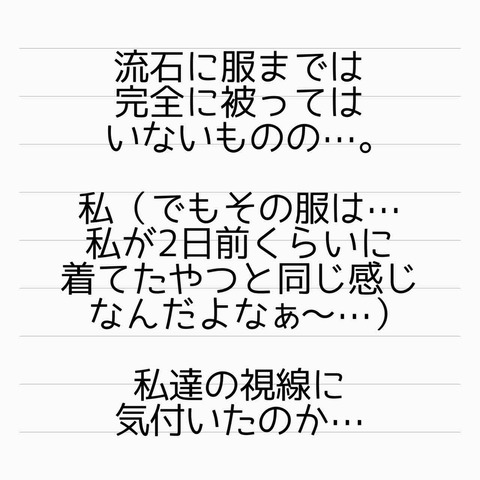 流石に服までは
完全に被っては
いないものの…。
私（でもその服は…
私が2日前くらいに
着てたやつと同じ感じ
なんだよなぁ〜…）
私達の視線に
気付いたのか…